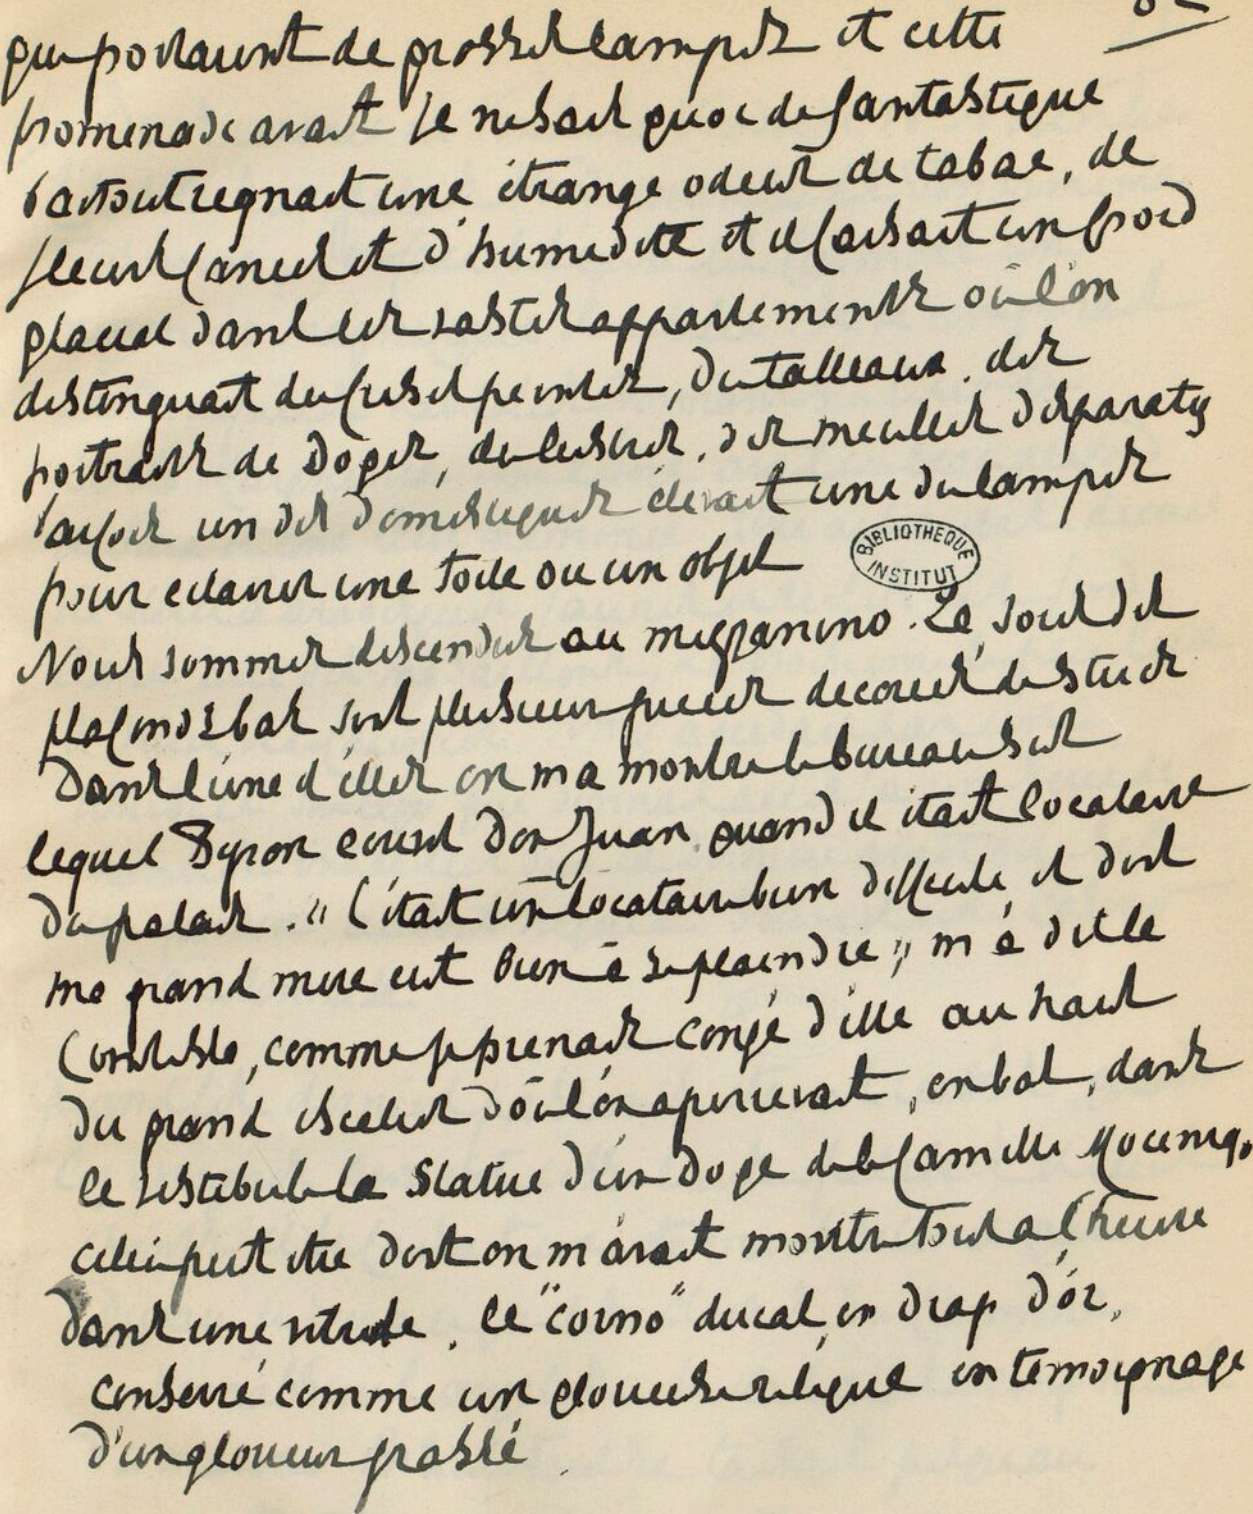 qui portaient de grosses lampes et cette
promenade avait je ne sais quoi de fantastique
Partout regnait une étrange odeur de tabac, de
fleurs fanees et d'humidité et il faisait un froid
glacial dans les vastes appartements où l'on
distinguait des frises peintes, des tableaux, des
portraits de Doges, des lustres, des meubles disparates
Parfois un des domestiques élevait une des lampes
pour eclairer une toile ou un objet
BIBLIOTHEQUE
INSTITUT
Nous sommes descendus au mezzanino. La, sous des
plafonds bas sont plusieurs pieces decorees de stucs
Dans l'une d'elles on m'a montré le bureau sur
lequel Byron ecrivit Don Juan quand il etait locataire
du palais. "C'était un locataire bien difficile et dont
ma grand mere eut bien à se plaindre", m'a dit la
Comtesse, comme je prenais congé d'elle au haut
du grand escalier d'où l'on apercevait, en bas, dans
le vestibule la statue d'un doge de la famille Mocenigo
celui peut etre dont on m'avait montré tout a l'heure
dans une vitrine, le "corno" ducal, en drap d'or,
conservé comme une glorieuse relique en temoignage
d'un glorieux passé